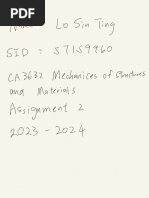 Name : Lo Sin Ting
SID : 57159960
CA3632 Mechanices of Structures
and Materials
Assignment 2
2023 - 2024